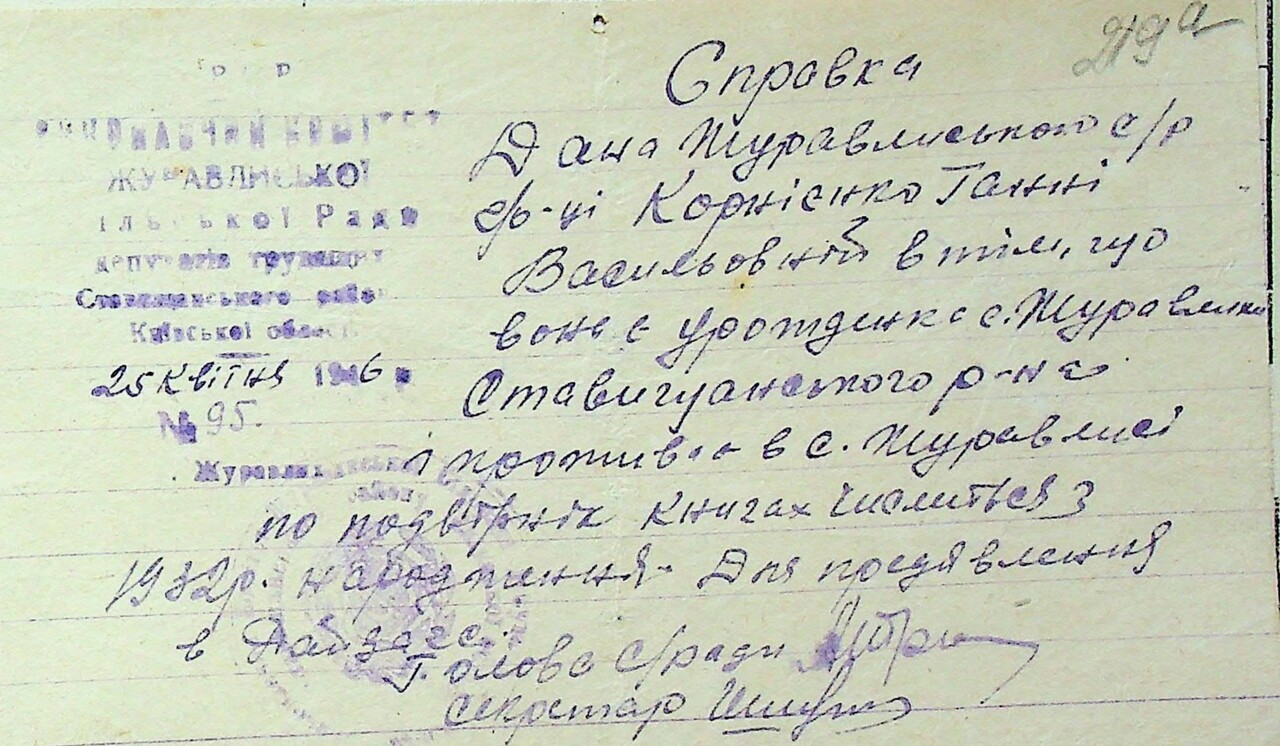 219а
Р Р
виконавчий комітет
ЖУРАВЛИСЬКОЇ
сільської Ради
депутатів трудящих
Ставищанського району
Київської області
25 квітня 1946 р
№ 95.
Справка
Дана Журавлиською с/р
гр-ці Корнієнко Ганні
Васильовній в тім, що
вона є урожденка с. Журавлихи
Ставищанського р-на
і прожива в с. Журавлисі
по подвірніх книгах числиться з
1932р. народження. Для предявлення
в
Голова с/ради
секретар